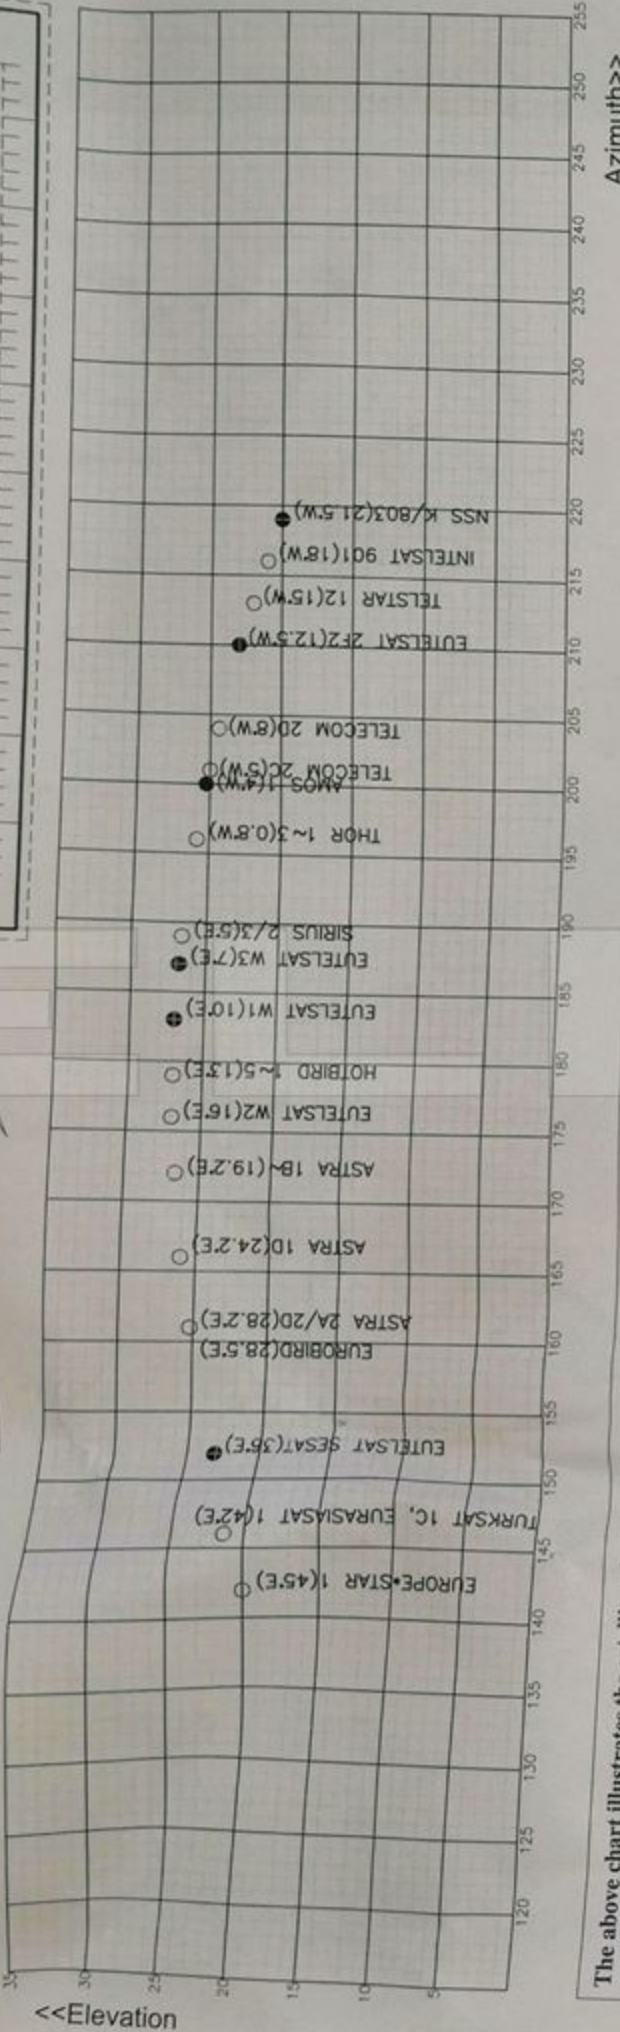 <<Elevation
35
30
25
20
15
10
5
120
125
130
135
140
145
150
155
160
165
170
175
180
185
190
195
200
205
210
215
220
225
230
235
240
245
250
255
Azimuth>>
EUROPE*STAR 1(45°E)
TURKSAT 1C, EURASIASAT 1(42°E)
EUTELSAT SESAT(36°E)
EUROBIRD(28.5°E)
ASTRA 2A/2D(28.2°E)
ASTRA 1D(24.2°E)
ASTRA 1B~(19.2°E)
EUTELSAT W2(16°E)
HOTBIRD 1~5(13°E)
EUTELSAT W1(10°E)
EUTELSAT W3(7°E)
SIRIUS 2/3(5°E)
THOR 1~3(0.8°W)
AMOS-1(4°W)
TELECOM 2C(5°W)
TELECOM 2D(8°W)
EUTELSAT 2F2(12.5°W)
TELSTAR 12(15°W)
INTELSAT 901(18°W)
NSS K/803(21.5°W)
The above chart illustrates the